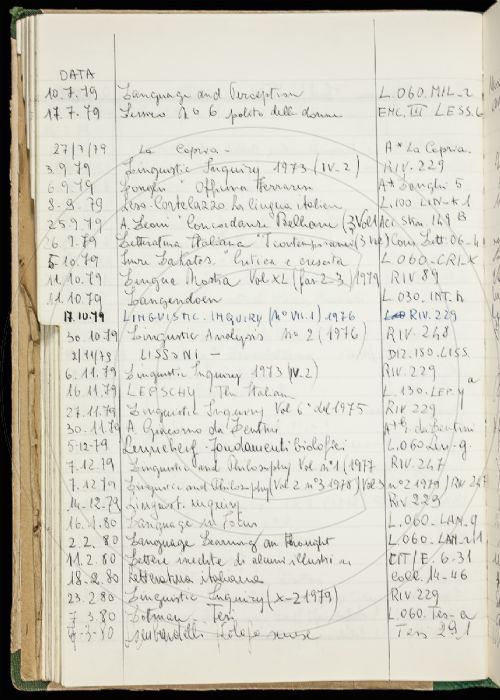 DATA
10.7.79 Language and Perception L.060.MIL-2
17.7.79 Lessico N° 6 polito delle donne EMC. III LESS.6
27/7/79 La Capria - A* La Capria.
3.9.79 Linguistic Inquiry 1973 (IV-2) RIV. 229
6.9.79 Longhi Officina Ferrarese A* Longhi 5
8-9-79 Cortelazzo La lingua italiana L.100
25.9.79 A. Leoni Concordanze Belliane
26.9.79 Letteratura Italiana I contemporanei Coll. Lett. 06-41
5.10.79 Imre Lakatos Critica e crescita L.060-CRI-X
11.10.79 Lingua Nostra Vol XL (fas. 2-3) 1979 RIV 89
11.10.79 Langendoen L.030.INT.
17.10.79 LINGUISTIC INQUIRY (N° VII.1) 1976 RIV. 229
30.10.79 Linguistic Analysis N° 2 (1976) RIV. 248
2/11/79 LISSONI - DIZ.180.LISS.
6.11.79 Linguistic Inquiry 1973 (IV-2) RIV. 229
16.11.79 LEPSCHY The Italian L.130-LEP.4 a
27.11.79 Linguistic Inquiry Vol 6° del 1975 RIV 229
30.11.79 A. Giacomo da Lentini da Lentini
5-12-79 Lenneberg - Fondamenti biologici L.060
7.12.79 Linguistic and Philosophy Vol n°1 (1977 RIV. 247
7.12.79 Linguistic and Philosophy (Vol 2 n°3 1978) Vol 3 n° 2 1979) RIV 247
14.12.79 Linguist. inquiry RIV 229
16.1.80 Language in focus L.060-LAN.9
2.2.80 Language Learning an thought L.060.LAN-211
11.2.80 Lettere inedite di alcuni illustri CIT/E.6-31
18.2.80 Letteratura italiana Coll. 14-46
23.2.80 Linguistic Inquiry (X-2 1979) RIV 229
7.3.80 Lotman - Tesi L.060.Tes-a
-3-80 Tes 29.1